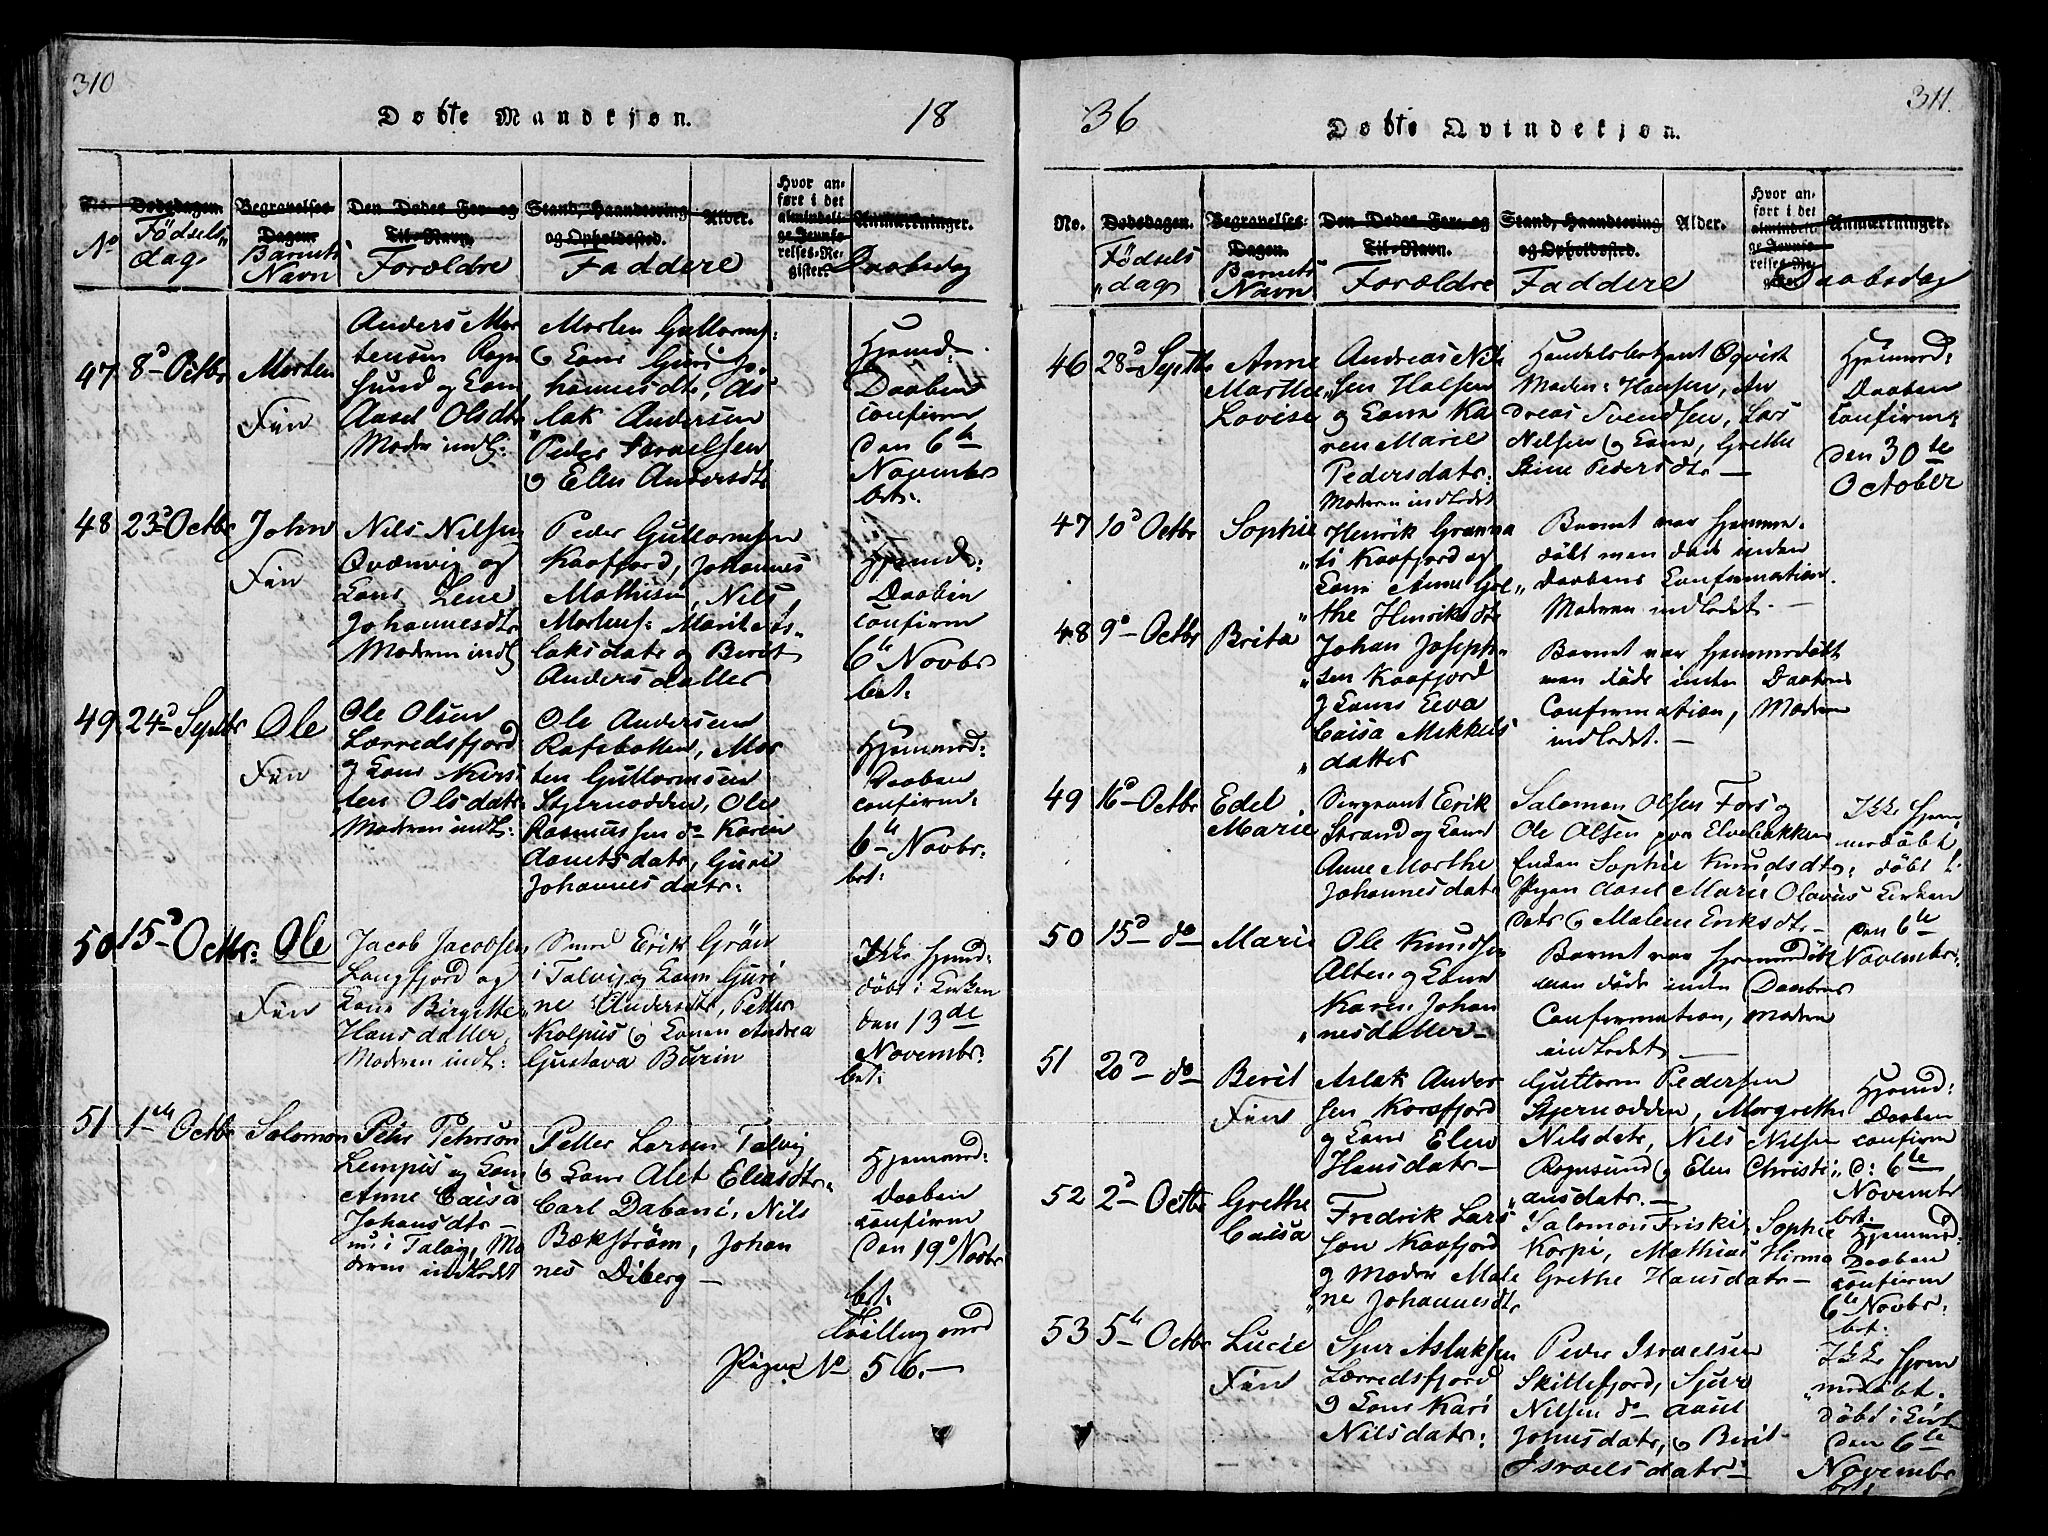 310
Döbte Mandkjøn.
18
No. Dødsdagen. Begravelses-Dagen. Den Dødes For- og Til-Navn. Stand, Haandtering og Opholdssted. Alder. Hvor anført i det almindelige Jevnførelses-Register. Anmærkninger.
No Födsels dag Barnets Navn Forældre Faddere Daabsdag
47 8d Octbr Morten
Fin
Anders Mor
tensen Rogn
sund og Kone
Aasel Olsdtr
Modren indl:
Morten Guttorms:
og Kone Guri Jo,
hannesdtr, As
lak Andersen
Peder Israelsen
og Elen Andersdtr
Hjemd:
Daaben
confirm
den 6te
Novembr
bet:
48 23d Octbr John
Fin
Nils Nilsen
Qvænvig og
Kone Lene
Johannesdtr
Modren indl
Peder Guttormsen
Kaafjord, Johannes
Mathisen, Nils
Mortens: Marit As„
laksdatr og Berit
Andersdatter
Hjemd:
Daaben
confirm
6te Novbr
bet:
49 24d Septbr Ole
Fin
Ole Olsen
Lærredsfjord
og Kone Kirs
ten Olsdatr
Modren indl:
Ole Andersen
Rafsbotten, Mor
ten Guttormsen
Stjernodden, Ole
Rasmussen do Karen
Danielsdatr, Guri
Johannesdatr:
Hjemmed:
Daaben
confirm:
6te Novbr:
bet:
50 15d Octbr: Ole
Fin
Jacob Jacobsen
Langfjord og
Kone Birgitte
Hansdatter,
Modren indl:
Smed Erik Grön
i Talvig og Kone Guri
ne Andersdtr, Petter
Kolpus og Konen Andrea
Gustava Burin
Ikke Hjemd:
döbt i Kirken
den 13de
Novembr:
bet:
51 1ste Octbr Salomon
Petter Peterson
Lempis og Kone
Anne Caisa
Johansdtr
nu i Talvig, Mo
deren indledt
Petter Larsen Talvig
og Kone Alet Eliasdtr
Carl Dabani, Nils
Bækström, Johan
nes Diberg —
Hjemmed:
Daaben
confirm
den 19d Novbr
bet:
Tvilling med
Pigen No 56. —
36
Döbte Qvindekjøn.
311.
No. Dødsdagen. Begravelses-Dagen. Den Dødes For- og Til-Navn. Stand, Haandtering og Opholdssted. Alder. Hvor anført i det almindelige Jevnførelses-Register. Anmærkninger.
Födsels dag Barnets Navn Forældre Faddere Daabsdag
46 28d Septbr Anne
Marthe
Lovise
Andreas Nil
sen Halsen
og Kone Ka
ren Marie
Pedersdatr:
Modren indledt
Handelsbetjent Qvist
Maden: Hansen, An
dreas Svendsen, Lars
Nilsen og Kone, Grethe
Stine Pedersdtr —
Hjemmed:
Daaben
confirm:
den 30te
October
47 10d Octbr Sophie
Henrik Granna
ti Kaafjord og
Kone Anne Gre„
the Henriksdtr
Barnet var hjemme
döbt men döde inden
Daabens Confirmation.
Modren indledet. —
48 9d Octbr Brita
Johan Joseph
sen Kaafjord
og Kone Eeva
Caisa Mikkels
datter
Barnet var Hjemmedöbt
men döde inden Daabens
Confirmation, Modren
indledet. —
49 16d Octbr Edel
Marie
Sergeant Erik
Strand og Kone
Anne Marthe
Johannesdatr
Salomon Olsen Fors og
Ole Olsen paa Elvebakken
Enken Sophie Knudsdtr:
Pigen Aasel Marie Olavus
datr og Malene Eriksdtr —
Ikke Hjem
medöbt
döbt i
Kirken
den 6te
Novembr:
50 15d do Marie
Ole Knudsen
Alten og Kone
Karen Johan
nesdatter —
Barnet var hjemmedöbt
men döde inden Daabens
Confirmation, Modren
indledet —
51 20d do Berit
Fin
Aslak Ander
sen Korsfjord
og Kone Elen
Hansdatr —
Guttorm Pedersen
Stjernodden, Margrethe
Nilsdatr, Nils Nilsen
Rognsund og Elen Christi
ansdatr. —
Hjemd:
Daaben
confirm
d: 6te
Novembr
bet.
52 2d Octbr Grethe
Caisa
Fredrik Lars
son Kaafjord
og Moder Male
ne Johannesdtr
Salomon Friski, Sophie
Korpi, Mathias Hirma
Grethe Hansdatr —
Hjemmed:
Daaben
confirm
6te Novbr:
bet:
53 5te Octbr Lucie
Fin
Sjur Aslaksen
Lærredsfjord
og Kone Kari
Nilsdatr:
Peder Israelsen
Skillefjord, Sjur
Nilsen do Aasel
Johnsdatr, og Berit
Israelsdatr —
Ikke Hjem
medöbt.
döbt i Kirken
den 6te
Novembr
bet: